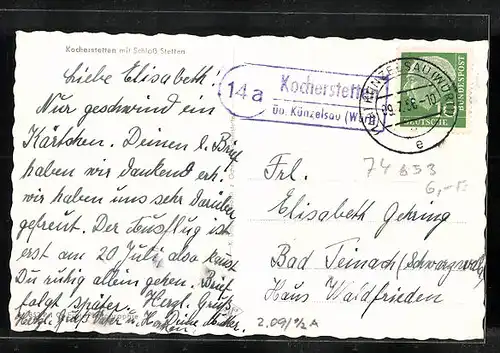 Kocherstetten mit Schloß Stetten
Liebe Elisabeth!
Nur geschwind ein
Kärtchen. Deinen l. Brief
haben wir dankend erh.
wir haben uns sehr darüber
gefreut. Der Ausflug ist
erst am 20 Juli also kannst
Du ruhig allein gehen. Brief
folgt später. Herzl. Grüße
14a
Kocherstetten
üb. Künzelsau (Württ)
KÜNZELSAU (WÜRTT)
e
DEUTSCHE
BUNDESPOST
10
74 653
6,-
Frl.
Elisabeth Gehring
Bad Teinach (Schwarzwald)
Haus Waldfrieden
2.09/1/2A